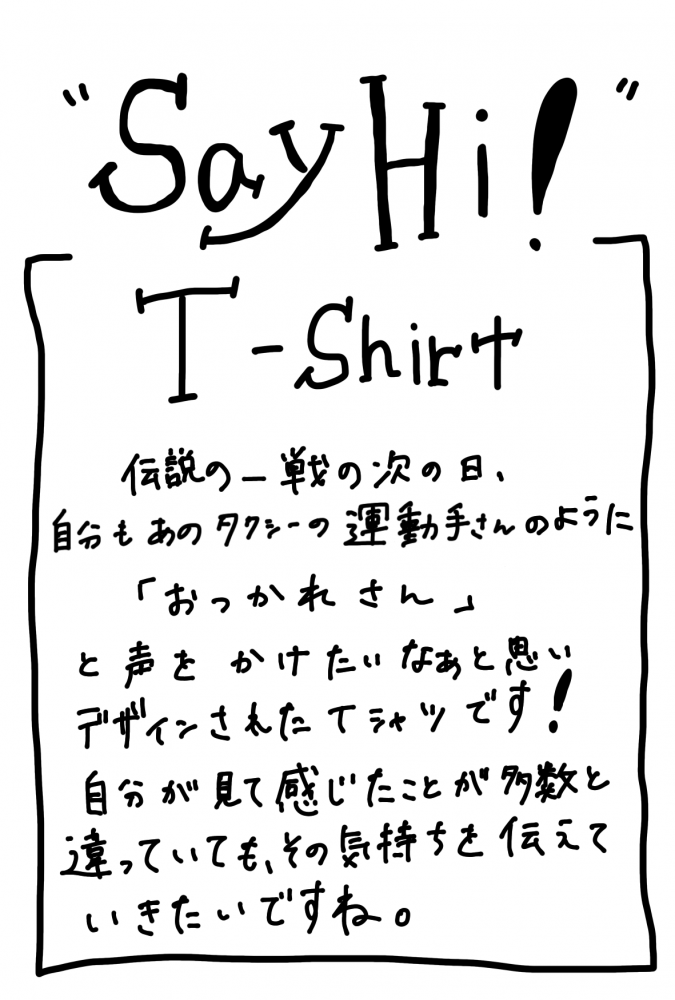 "Say Hi!"
T-Shirt
伝説の一戦の次の日、
自分もあのタクシーの運動手さんのように
「おっかれさん」
と声をかけたいなぁと思い
デザインされたTシャツです!
自分が見て感じたことが多数と
違っていても、その気持ちを伝えて
いきたいですね。